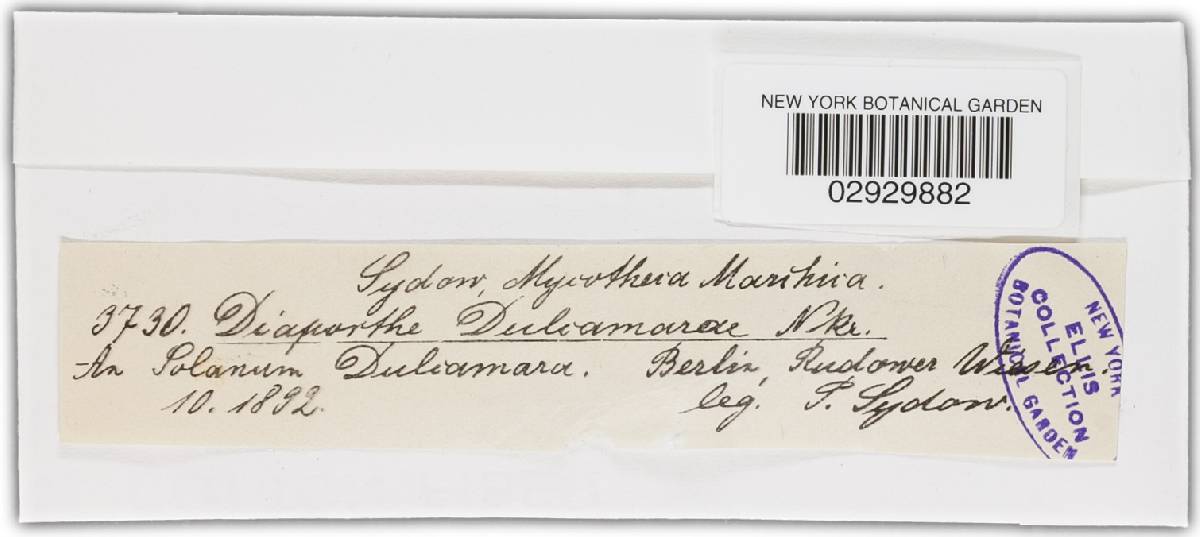 NEW YORK BOTANICAL GARDEN
02929882
Sydow, Mycotheca Marchica.
3730. Diaporthe Dulcamarae Nke.
An Solanum Dulcamara. Berlin, Rudower Wiesen.
10. 1892. leg. P. Sydow.
NEW YORK
ELLIS
COLLECTION
BOTANICAL GARDEN